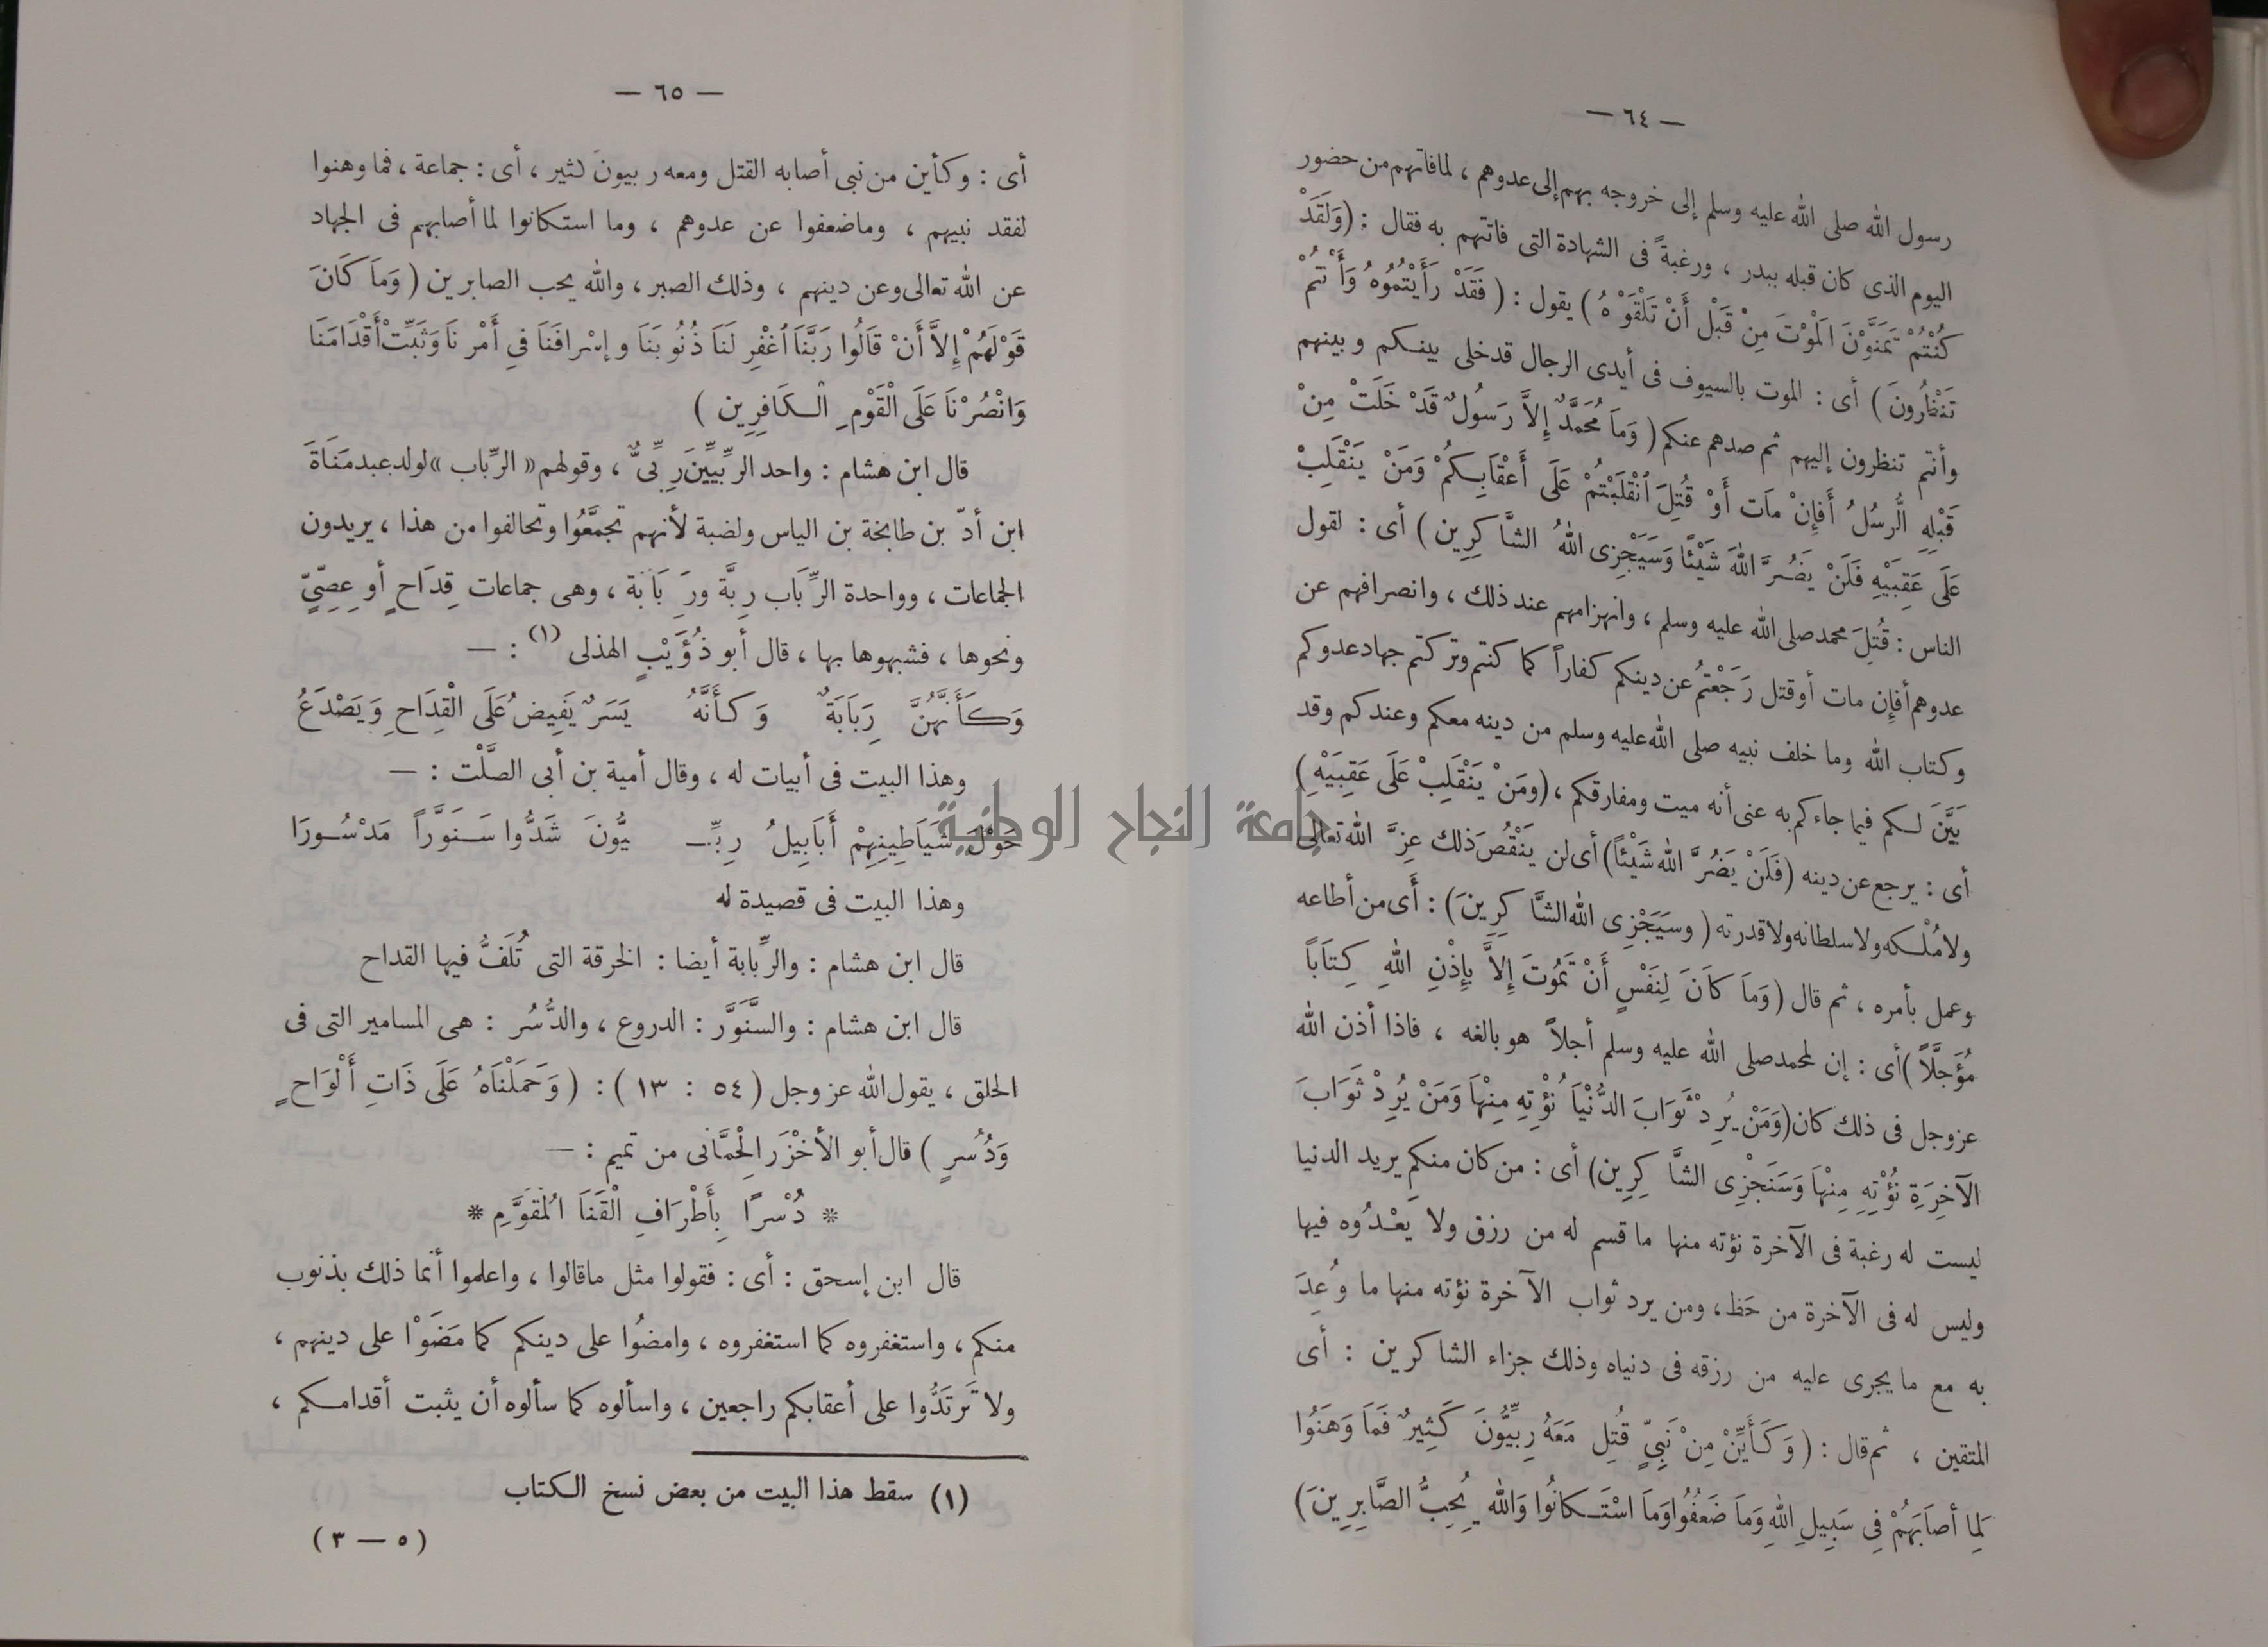 — ٦٤ —
رسول الله صلى الله عليه وسلم إلى خروجه بهم إلى عدوهم ، لما فاتهم من حضور
اليوم الذى كان قبله ببدر ، ورغبةً فى الشهادة التى فاتتهم به فقال : (وَلَقَدْ
كُنْتُمْ تَمَنَّوْنَ الْمَوْتَ مِنْ قَبْلِ أَنْ تَلْقَوْهُ) يقول : (فَقَدْ رَأَيْتُمُوهُ وَأَنْتُمْ
تَنْظُرُونَ) أى : الموت بالسيوف فى أيدى الرجال قد خلى بينكم وبينهم
وأنتم تنظرون إليهم ثم صدهم عنكم (وَمَا مُحَمَّدٌ إِلاَّ رَسُولٌ قَدْ خَلَتْ مِنْ
قَبْلِهِ الرُّسُلُ أَفَإِنْ مَات أَوْ قُتِلَ اٌنْقَلَبْتُمْ عَلَى أَعْقَابِكُمْ وَمَنْ يَنْقَلِبْ
عَلَى عَقِبَيْهِ فَلَنْ يَضُرَّ اللهَ شَيْئًا وَسَيَجْزِى اللهُ الشَّاكِرِين) أى : لقول
الناس : قُتِلَ محمد صلى الله عليه وسلم ، وانهزامهم عند ذلك ، وانصرافهم عن
عدوهم أفإن مات أو قتل رَجَعْتُم عن دينكم كفاراً كما كنتم وتركتم جهاد عدوكم
وكتاب الله وما خلف نبيه صلى الله عليه وسلم من دينه معكم وعندكم وقد
بَيَّنَ لكم فيما جاءكم به عنى أنه ميت ومفارقكم ، (ومَنْ يَنْقَلِبْ عَلَى عَقِبَيْهِ)
أى : يرجع عن دينه (فَلَنْ يَضُرَّ الله شَيْئاً) أى لن يَنْقُصَ ذلك عِزَّ الله تعالى
ولا مُلْكه ولا سلطانه ولا قدرته (وسَيَجْزِى الله الشَّاكِرِينَ) : أَى من أطاعه
وعمل بأمره ، ثم قال (وَمَا كَانَ لِنَفْسٍ أَنْ تَمُوتَ إِلاَّ بِإِذْنِ اللهِ كِتَاباً
مُؤَجَّلاً) أى : إن لمحمد صلى الله عليه وسلم أجلاً هو بالغه ، فاذا أذن الله
عز وجل فى ذلك كان (وَمَنْ يُرِدْ ثَوَابَ الدُّنْيَا نُؤْتِهِ مِنْهَا وَمَنْ يُرِدْ ثَوَابَ
الآخِرَةِ نُؤْتِهِ مِنْهَا وَسَنَجْزِى الشَّاكِرِين) أى : من كان منكم يريد الدنيا
ليست له رغبة فى الآخرة نؤته منها ما قسم له من رزق ولا يَعْدُوه فيها
وليس له فى الآخرة من حَظ ، ومن يرد ثواب الآخرة نؤته منها ما وُعِدَ
به مع ما يجرى عليه من رزقه فى دنياه وذلك جزاء الشاكرين : أى
المتقين ، ثم قال : (وَكَأَيِّنْ مِنْ نَبِيٍّ قُتِل مَعَهُ رِبِّيُّونَ كَثِيرٌ فَمَا وَهَنُوا
لِمَا أَصَابَهُمْ فِي سَبِيلِ اللهِ وَمَا ضَعُفُوا وَمَا اسْتَكانُوا وَاللهُ يُحِبُّ الصَّابِرِينَ)
— ٦٥ —
أى : وكأين من نبى أصابه القتل ومعه ربيون كثير ، أى : جماعة ، فما وهنوا
لفقد نبيهم ، وما ضعفوا عن عدوهم ، وما استكانوا لما أصابهم فى الجهاد
عن الله تعالى وعن دينهم ، وذلك الصبر ، والله يحب الصابرين (وَمَا كَانَ
قَوْلَهُمْ إِلاَّ أَنْ قَالُوا رَبَّنَا اغْفِر لَنَا ذُنُوبَنَا وإِسْرافَنَا فِي أَمْرِنَا وَثَبِّتْ أَقْدَامَنَا
وَانْصُرْنَا عَلَى الْقَوْمِ الْكَافِرِين)
قال ابن هشام : واحد الرِّبيِّين رِبِّىٌّ ، وقولهم « الرِّباب » لولد عبد مَنَاةَ
ابن أدّ بن طابخة بن الياس ولضبة لأنهم تجمَّعُوا وتحالفوا من هذا ، يريدون
الجماعات ، وواحدة الرِّبَاب رِبَّة ورِبَابَة ، وهى جماعات قِدَاحٍ أو عِصِّيٍّ
ونحوها ، فشبهوها بها ، قال أبو ذُؤَيْبٍ الهذلى (١) : —
وَكَأَنَّهُنَّ رِبَابَةٌ وَكَأَنَّهُ يَسَرٌ يَفِيضُ عَلَى الْقِدَاحِ وَيَصْدَعُ
وهذا البيت فى أبيات له ، وقال أمية بن أبى الصَّلْت : —
حَوْلَ شَيَاطِينِهِمْ أَبَابِيلُ رِبِّـ ـيُّونَ شَدُّوا سَنَوَّراً مَدْسُورَا
وهذا البيت فى قصيدة له
قال ابن هشام : والرِّبابة أيضا : الخرقة التى تُلَفُّ فيها القداح
قال ابن هشام : والسَّنَوَّر : الدروع ، والدُّسُر : هى المسامير التى فى
الحلق ، يقول الله عز وجل (٥٤ : ١٣) : (وَحَمَلْنَاهُ عَلَى ذَاتِ أَلْوَاحٍ
وَدُسُرٍ) قال أبو الأخْزَر الْحِمَّانى من تميم : —
* دُسْراً بِأَطْرَافِ الْقَنَا الْمُقَوَّمِ *
قال ابن إسحق : أى : فقولوا مثل ما قالوا ، واعلموا أنما ذلك بذنوب
منكم ، واستغفروه كما استغفروه ، وامضُوا على دينكم كما مَضَوْا على دينهم ،
ولا تَرتَدُّوا على أعقابكم راجعين ، واسألوه كما سألوه أن يثبت أقدامكم ،
(١) سقط هذا البيت من بعض نسخ الكتاب
(٥ — ٣)
جامعة النجاح الوطنية